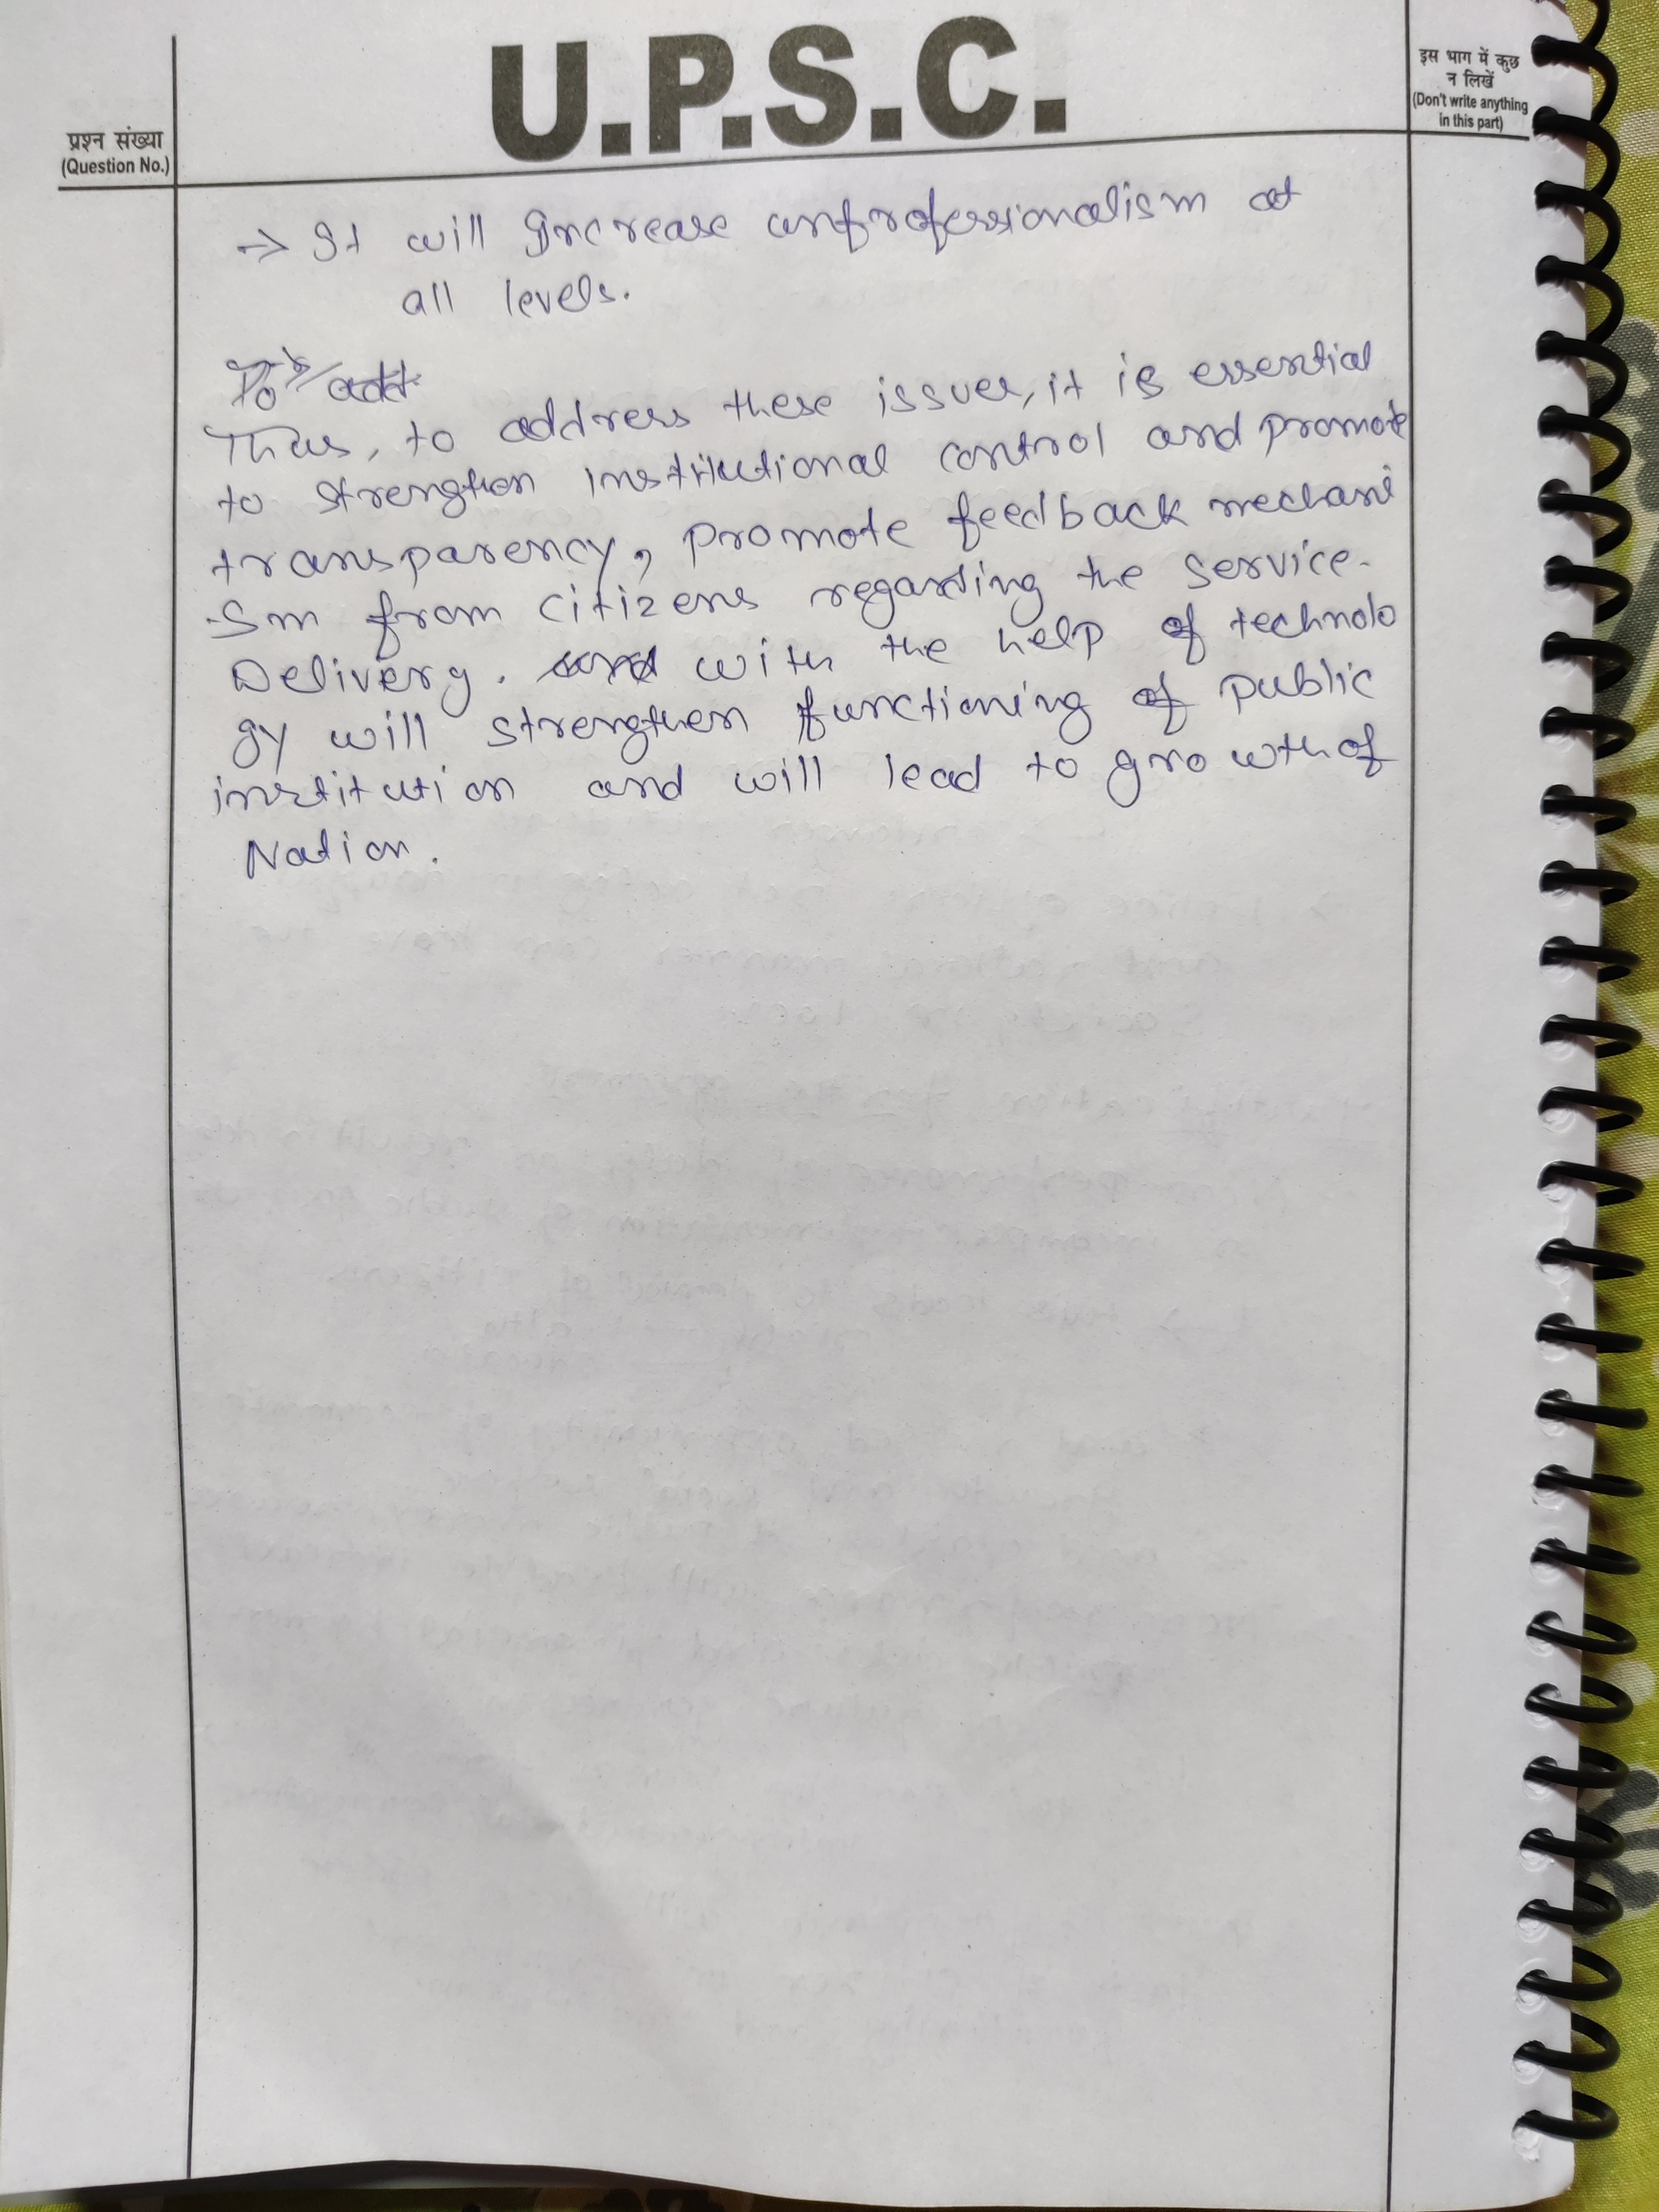 U.P.S.C.
प्रश्न संख्या
(Question No.)
इस भाग में कुछ
न लिखें
(Don't write anything
in this part)
→ It will Increase unprofessionalism at
all levels.
To add
Thus, to address these issues, it is essential
to strengthen institutional control and promote
transparency, promote feedback mechani
-sm from citizens regarding the service-
Delivery. and with the help of technolo
gy will strengthen functioning of public
institution and will lead to growth of
Nation.